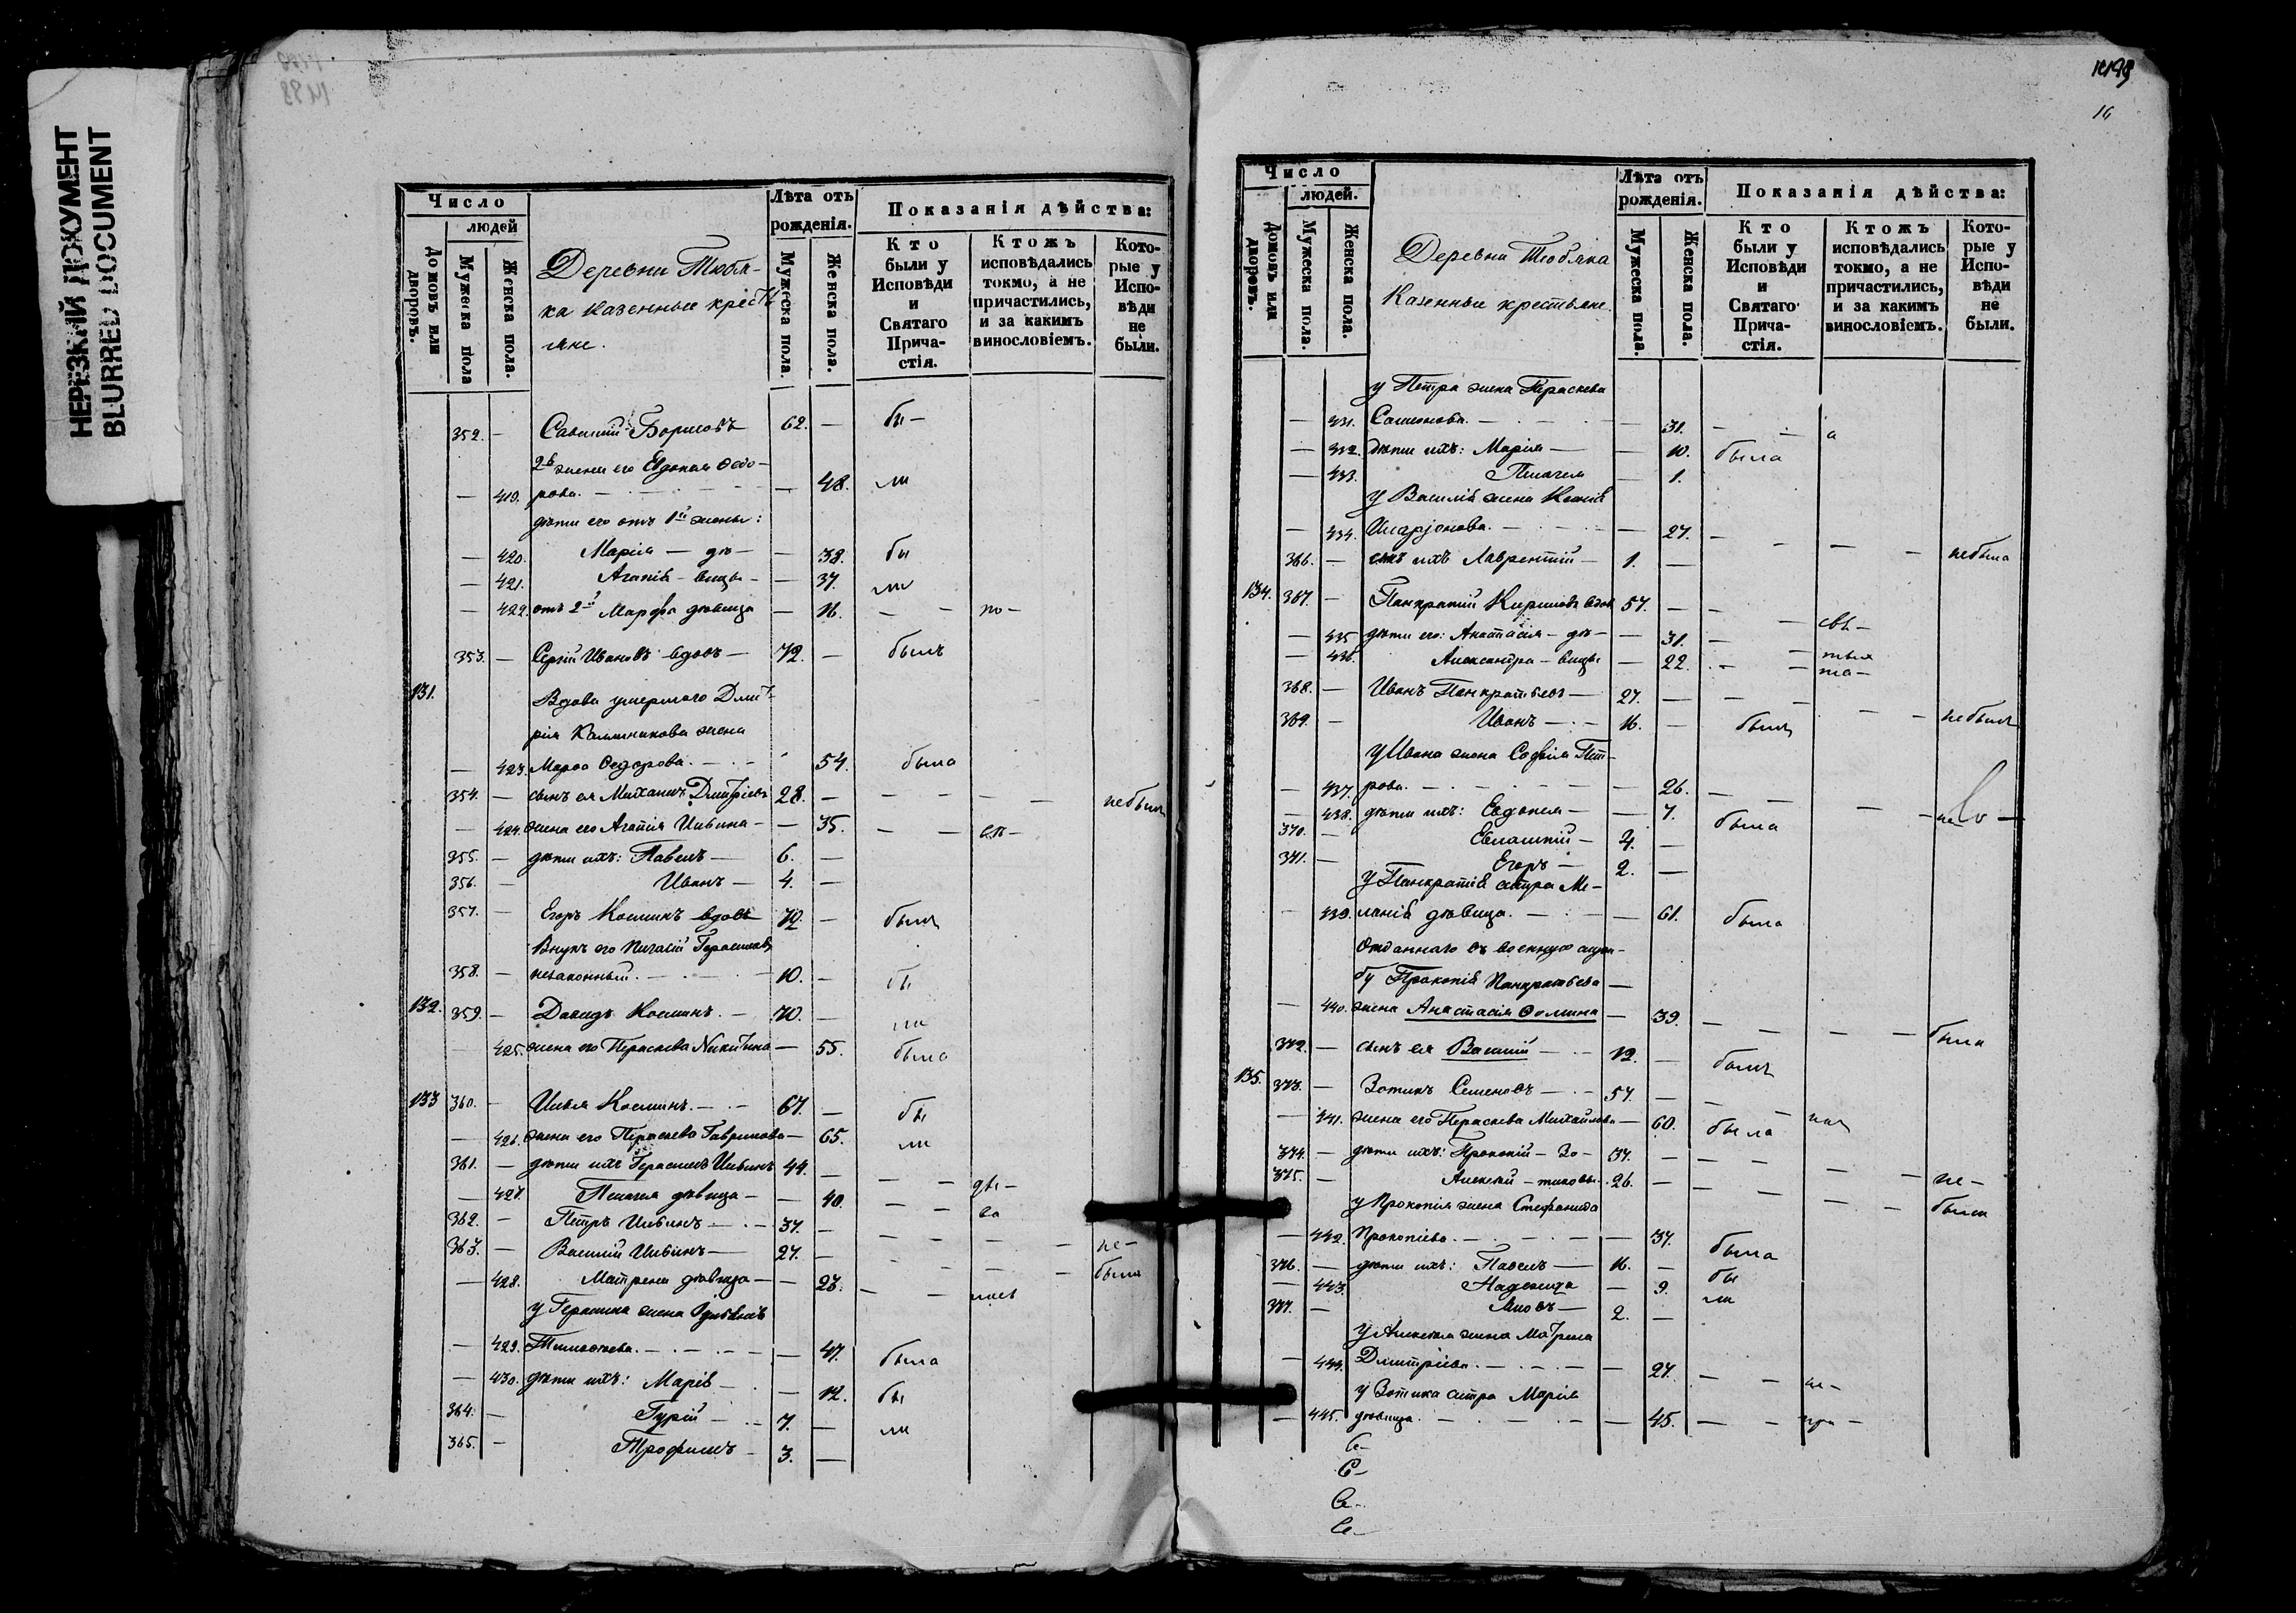 НЕРЕЗКИЙ ДОКУМЕНТ
BLURRED DOCUMENT
Число
людей
Домовъ или дворовъ.
Мужеска пола
Женска пола.
Деревни Тюбя-
ка казенные кресть
яне.
Лѣта отъ рожденія.
Мужеска пола.
Женска пола.
Показанія дѣйства:
Кто были у Исповѣди и Святаго Прича- стія.
Ктожъ исповѣдались токмо, а не причастились, и за какимъ винословіемъ.
Кото- рые у Испо- вѣди не были.
352. — Савелій Борисовъ 62. — бы —
2я жена его Евдокия Федо-
— 419. рова. — — 48. ли
дѣти его отъ 1й жены:
— 420. Марія — дѣ — — 38. бы
— 421. Агапія — вицы — — 37. ли
— 422. отъ 2й Марфа дѣвица — 16. — — по —
353. — Сергій Ивановъ вдовъ — 72. — былъ
131. Вдова умершаго Дмит-
рія Калинникова жена
— 423. Марфа Федорова. — 54. была
354. — сынъ ея Михаилъ Дмитріевъ 28. — — — — — небылъ
— 424. жена его Агапія Ильина — — 35. — —
355. — дѣти ихъ: Павелъ — 6. —
356. — Иванъ — 4. —
357. — Егоръ Косминъ вдовъ 72. — былъ
Внукъ его Герасимовъ
358. — незаконный. — 10. — бы
132. 359. — Давидъ Косминъ. — 70. — ли
425. жена его Параскева Никитина — 55. была
133 360. — Илья Косминъ. — 67. — бы
— 426. жена его Параскева Гаврилова — 65. ли
361. — дѣти ихъ Герасимъ Ильинъ 44. —
— 427. Пелагея дѣвица — — 40. — — два —
362. — Петръ Ильинъ — 37. — — —
363. — Василій Ильинъ — 27. — не —
— 428. Матрена дѣвица — — 23. — — были
у Герасима жена
— 429. Тимофеева. — — 47. была
— 430. дѣти ихъ: Марія — — 12. бы
364. — Гурій — 7. — ли
365. — Трофимъ — 3. —
16
Число
людей.
Домовъ или дворовъ.
Мужеска пола.
Женска пола.
Деревни Тюбяка
Казенные крестьяне.
Лѣта отъ рожденія.
Мужеска пола.
Женска пола.
Показанія дѣйства:
Кто были у Исповѣди и Святаго Прича- стія.
Ктожъ исповѣдались токмо, а не причастились, и за какимъ винословіемъ.
Кото- рые у Испо- вѣди не были.
у Петра жена Параскева
— 431. Самсонова. — — 31. — — а
— 432. дѣти ихъ: Марія — — 10. была
— 433. Пелагея — 1.
у Василія жена Ксенія
— 434. Иларіонова. — — 27. — — — — небыла
366. — сынъ ихъ Лаврентій — 1. —
134. 367. — Панкратій Кириловъ вдов 57. — — —
— 435 дѣти его: Анастасія — дѣ — — 31. —
— 436. Александра — вицы — 22. — —
368. — Иванъ Панкратьевъ — 27. — — — — небылъ
369. — Иванъ — 16. — былъ
у Ивана жена Софія Пет-
— 437. рова. — — 26. — — — —
— 438. дѣти ихъ: Евдокея — — 7. была
370. — Евлампій — 4. —
371. — Егоръ — 2. —
у Панкратія сестра Ме-
— 439. ланія дѣвица. — — 61. была
Отданнаго въ военную служ-
бу Прокопія Панкратьева —
— 440. жена Анастасія Фомина — 39. — — — — была
372. — сынъ ея Василій — 12. — былъ
135. 373. — Зотикъ Семеновъ — 57. — — —
— 441. жена его Параскева Михайлова — 60. была
374. — дѣти ихъ: Прокопій — Зо — 37. — — — —
375. — Алексѣй — тиковы. 26. — — — — не —
у Прокопія жена Стефанида были
— 442. Прокопіева. — — 37. была
376. — дѣти ихъ: Павелъ — 16. — бы
— 443. Надежда — 9. ли
377. — Яковъ — 2. —
у Алексѣя жена Матрена
— 444. Дмитріева. — — 27. — — не —
у Зотика сестра Марія
— 445. дѣвица. — — 45. — —